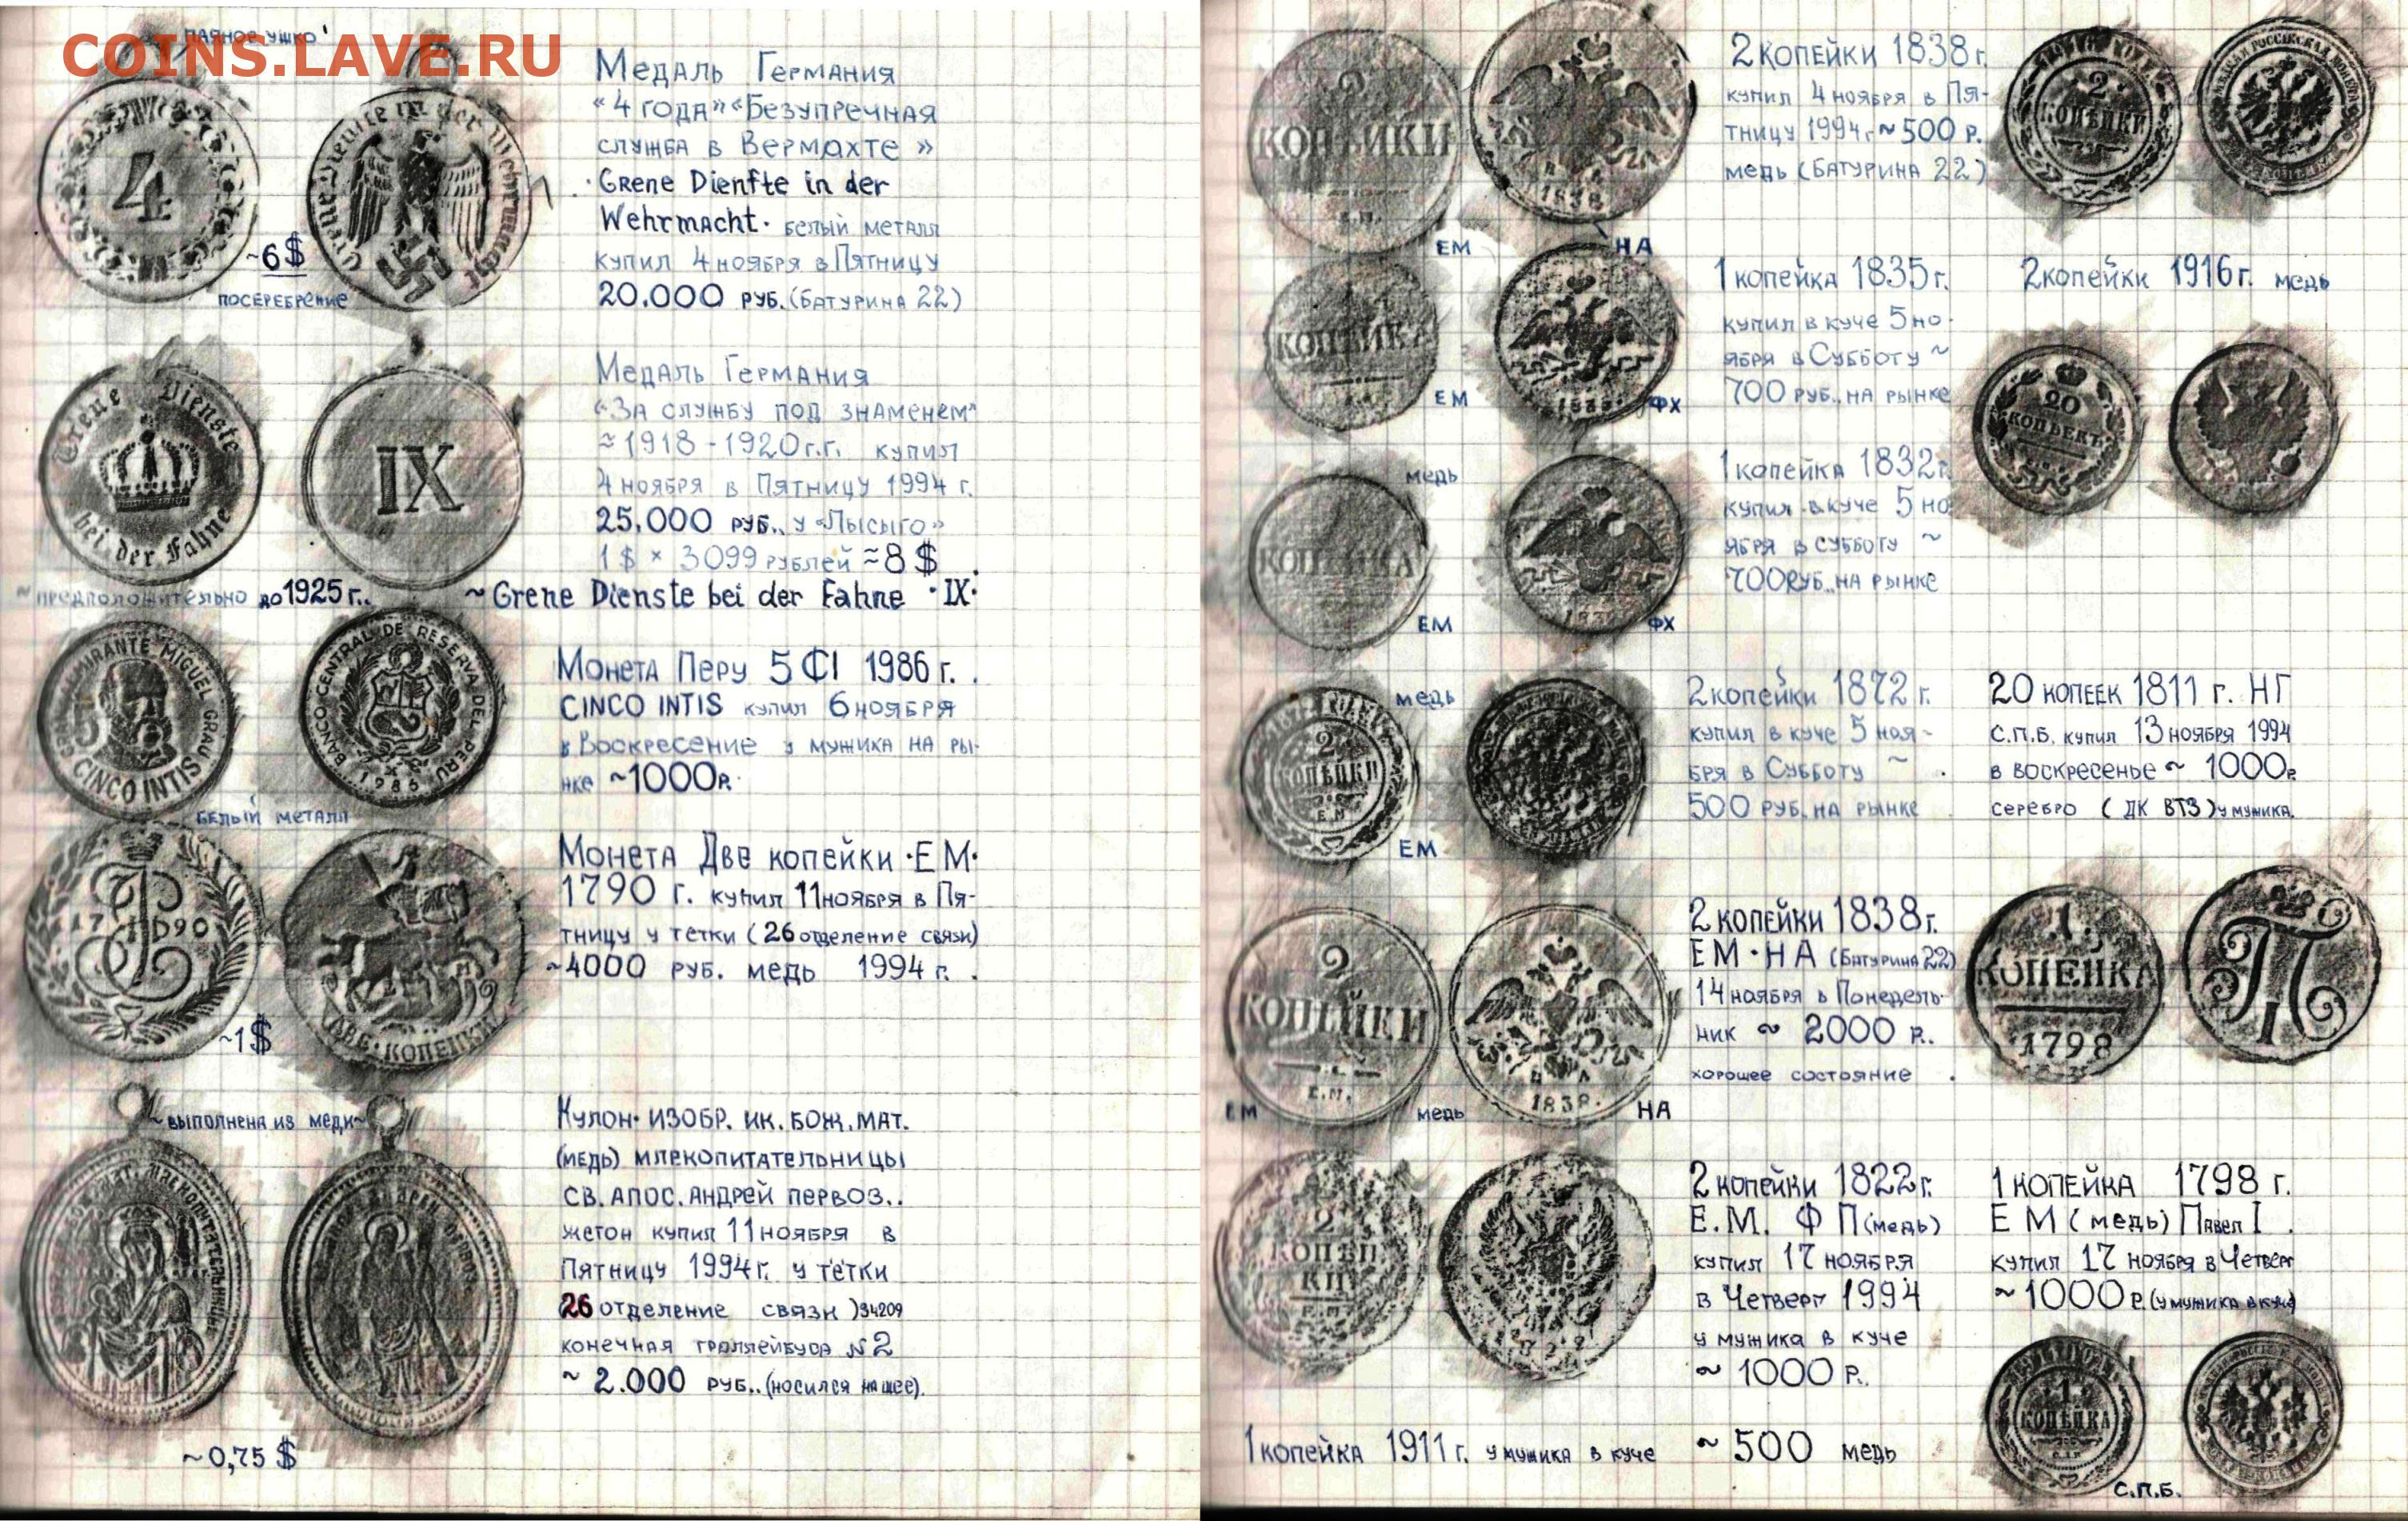 COINS.LAVE.RU
ПАЯНОЕ УШКО
Медаль Германия
«4 года» «Безупречная
служба в Вермахте»
·Grene Dienfte in der
Wehrmacht· белый металл
купил 4 ноября в Пятницу
20.000 руб. (Батурина 22)
4
Wehrmacht
~6$
посеребрение
Медаль Германия
«За службу под знаменем"
≈1918-1920г.г. купил
4 ноября в Пятницу 1994 г.
25.000 руб.. у «Лысыго»
1$ × 3099 рублей ≈8$
Grene Dienste
bei der Fahne
IX
~ предположительно до 1925 г..
~ Grene Dienste bei der Fahne ·IX·
Монета Перу 5 ₵I 1986 г. .
CINCO INTIS купил 6 ноября
в Воскресение у мужика на ры-
нке ~1000р.
GRAN ALMIRANTE MIGUEL GRAU
5
CINCO INTIS
BANCO CENTRAL DE RESERVA DEL PERU
1986
белый металл
Монета Две копейки ·ЕМ·
1790 г. купил 11 ноября в Пя-
тницу у тетки (26 отделение связи)
~4000 руб. медь 1994 г. .
17 90
ДВЕ·КОПЕЙКИ
~1$
~ выполнена из меди ~
Кулон· изобр. ик. бож. мат.
(медь) млекопитательницы
св. апос. Андрей первоз..
жетон купил 11 ноября в
Пятницу 1994г. у тётки
26 отделение связи )34209
конечная троллейбуса №2
~ 2.000 руб.. (носился на шее).
~0,75 $
2
КОПѢЙКИ
Е.М.
1838
ЕМ
НА
2 копейки 1838 г.
купил 4 ноября в Пя-
тницу 1994г ~500 р.
медь (Батурина 22)
2
КОПѢЙКИ
2 копейки 1916 г. медь
КОПѢЙКА
ЕМ
ФХ
1 копейка 1835 г.
купил в куче 5 но-
ября в Субботу ~
700 руб.. на рынке
20
КОПѢЕКЪ
медь
КОПѢЙКА
ЕМ
ФХ
1 копейка 1832 г.
купил в куче 5 но
ября в субботу ~
700 руб.. на рынке
медь
2
КОПѢЙКИ
Е.М
ЕМ
2 копейки 1872 г.
купил в куче 5 ноя-
бря в Субботу ~
500 руб. на рынке
20 копеек 1811 г. НГ
С.П.Б. купил 13 ноября 1994
в воскресенье ~ 1000р
серебро ( ДК ВТЗ ) у мужика.
2
КОПѢЙКИ
Е.М.
1838.
ЕМ
медь
НА
2 копейки 1838г.
ЕМ·НА (Батурина 22)
14 ноября в Понедель-
ник ~ 2000 р.
хорошее состояние .
1
КОПЕЙКА
1798
П
I
2
КОПѢЙ
КИ
2 копейки 1822г.
Е.М. Ф П (медь)
купил 17 ноября
в Четверг 1994
у мужика в куче
~ 1000 р..
1 копейка 1798 г.
Е М ( медь) Павел I .
купил 17 ноября в Четверг
~ 1000 р. (у мужика в куче)
1 копейка 1911 г. у мужика в куче ~ 500 медь
1
КОПѢЙКА
С.П.Б.